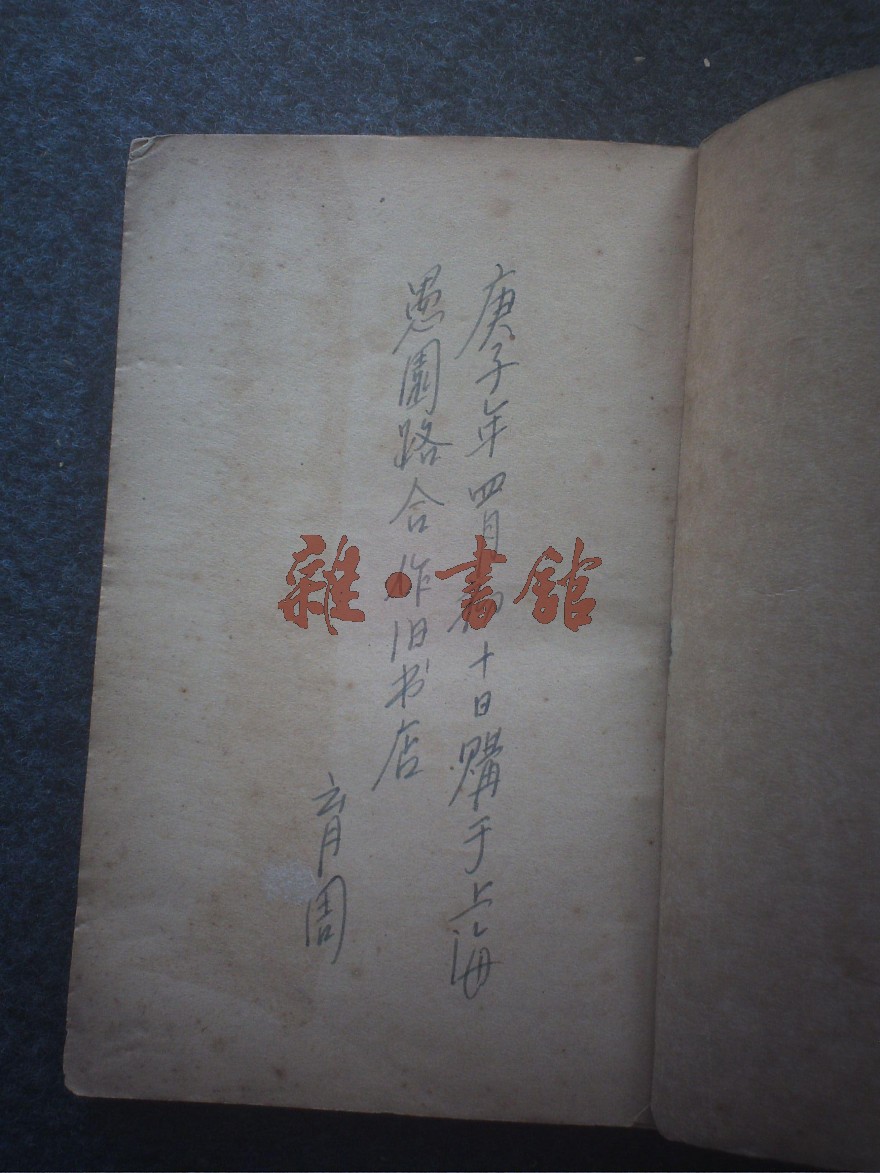 庚子年四月初十日購于上海
愚園路合作旧书店
育周
雜·書館